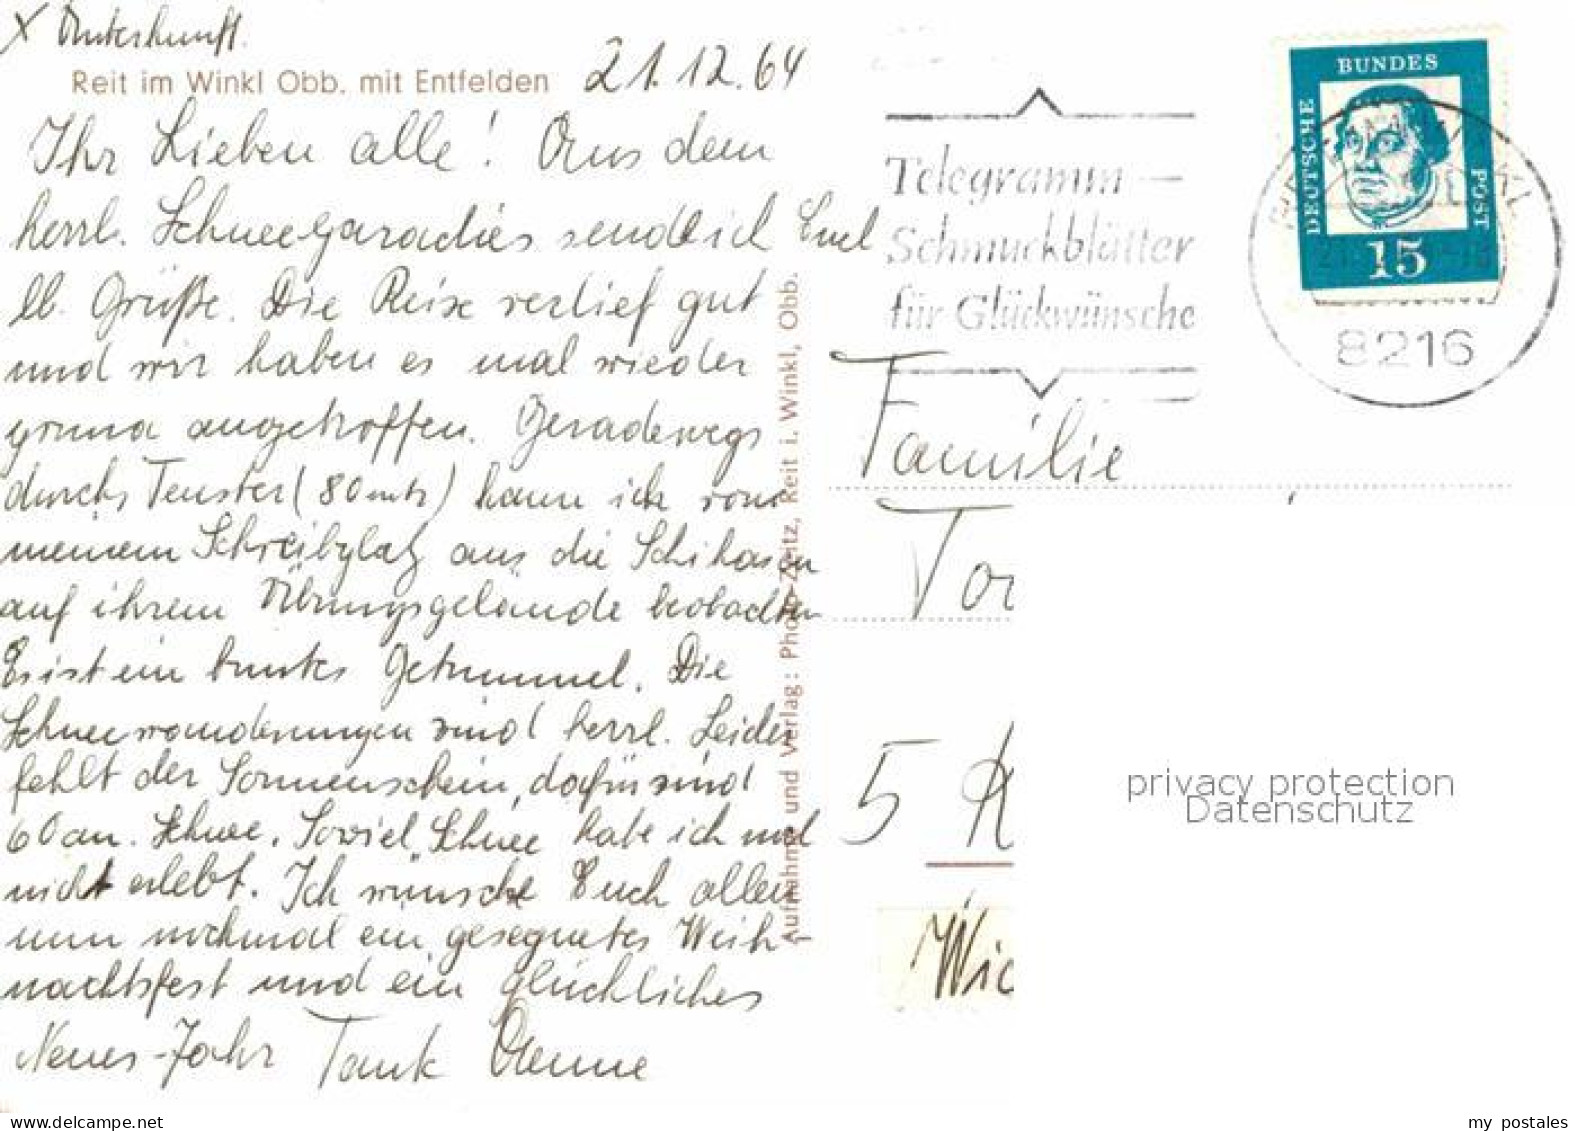 X Unterkunft.
Reit im Winkl Obb. mit Entfelden
21.12.64
Ihr Lieben alle! Aus dem
herrl. Schneeparadies send ich Euch
lb. Grüße. Die Reise verlief gut
und wir haben es mal wieder
prima angetroffen. Geradewegs
durchs Fenster (80 mtr) kann ich von
meinem Schreibplatz aus die Schihasen
auf ihrem Übungsgelände beobachten
Es ist ein buntes Getümmel. Die
Schneewanderungen sind herrl. Leider
fehlt der Sonnenschein, dafür sind
60 cm. Schnee. Soviel Schnee habe ich
nicht erlebt. Ich wünsche Euch allen
nun nochmal ein gesegnetes Weih-
nachtsfest und ein glückliches
Neues-Jahr Tante Änne
Aufnahme und Verlag: Photo-Zeitz, Reit i. Winkl, Obb.
Telegramm —
Schmuckblätter
für Glückwünsche
DEUTSCHE
BUNDES
POST
15
8216
Familie
5
privacy protection
Datenschutz
www.delcampe.net
my_postales